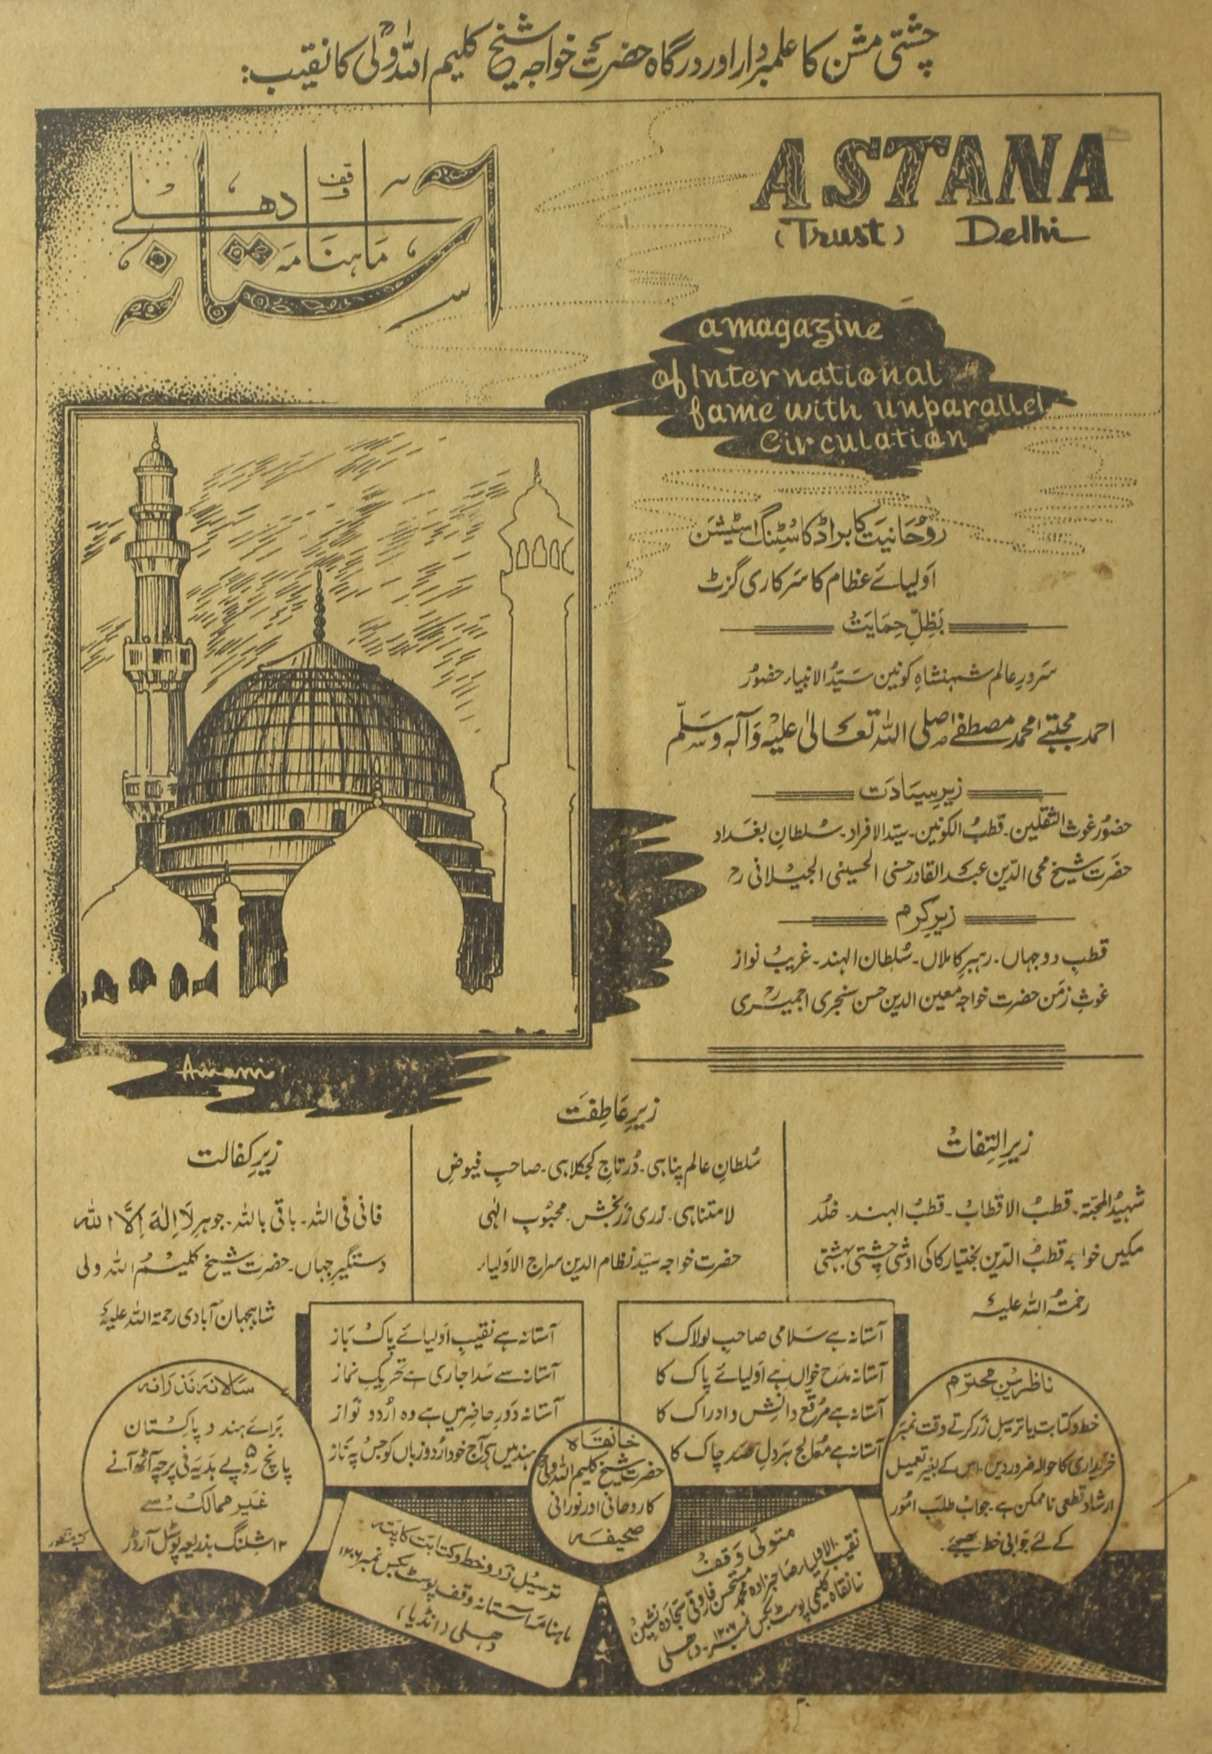 چشتی مشن کا علمبردار اور درگاہ حضرت خواجہ شیخ کلیم اللہ ولیؒ کا نقیب:
ماہنامہ آستانہ دھلی
وقف
ASTANA
(Trust) Delhi
a magazine
of International
fame with unparallel
Circulation
روحانیت کا براڈکاسٹنگ اسٹیشن
اولیائے عظام کا سرکاری گزٹ
بظلِ حمایت
سرورِ عالم شہنشاہِ کونین سید الانبیاء حضور
احمد مجتبےٰ محمد مصطفےٰ صلی اللہ تعالیٰ علیہ وآلہ وسلّم
زیرِ سیادت
حضور غوث الثقلین۔ قطب الکونین۔ سیّد الافراد۔ سلطانِ بغداد
حضرت شیخ محی الدین عبدالقادر حسنی الحسینی الجیلانی رح
زیرِ کرم
قطبِ دوجہاں۔ رہبرِ کاملاں۔ سُلطان الہند۔ غریب نواز
غوثِ زمن حضرت خواجہ معین الدین حسن سنجری اجمیریؒ
زیرِ التفات
شہیدُ المحبۃ۔ قطبُ الاقطاب۔ قطب الہند۔ خلد
مکیں خواجہ قطب الدین بختیار کاکی اوشی چشتی بہشتی
رحمۃ اللہ علیہ
زیرِ عاطفت
سُلطانِ عالم پناہی۔ دُرتاجِ کجکلاہی۔ صاحبِ فیوضِ
لامتناہی۔ زری زربخش۔ محبوبِ الٰہی
حضرت خواجہ سیّد نظام الدین سراج الاولیاء
زیرِ کفالت
فانی فی اللہ۔ باقی باللہ۔ جوہرِ لَا اِلٰهَ اِلَّا اللہ
دستگیرِ جہاں۔ حضرت شیخ کلیم اللہ ولی
شاہجہان آبادی رحمۃ اللہ علیہ
آستانہ ہے سلامی صاحبِ لولاک کا
آستانہ مدح خواں ہے اولیائے پاک کا
آستانہ ہے مرقعِ دانش و ادراک کا
آستانہ ہے معالج ہر دلِ صد چاک کا
آستانہ ہے نقیبِ اولیائے پاک باز
آستانہ سے سدا جاری ہے تحریکِ نماز
آستانہ دورِ حاضر میں ہے وہ اُردو نواز
ہند میں ہی آج خود اُردو زباں کو جس پہ ناز
ناظرینِ محترم
خط و کتابت یا ترسیل زر کرتے وقت نمبر
خریداری کا حوالہ ضرور دیں۔ اس کے بغیر تعمیل
ارشاد قطعی ناممکن ہے۔ جواب طلب امور
کے لئے جوابی خط بھیجئے۔
خانقاہ
حضرت شیخ کلیم اللہ ولیؒ
کا روحانی اور نورانی
صحیفہ
سالانہ نذرانہ
برائے ہند و پاکستان
پانچ روپے ہدیہ فی پرچہ آٹھ آنے
غیر ممالک سے
۱۲ شلنگ بذریعہ پوسٹل آرڈر
متولی وقف
نقیب الاولیاء صاحبزادہ محمد مستحسن فاروقی سجادہ نشین
خانقاہ کلیمی پوسٹ بکس نمبر ۱۲۰۷۔ دہلی
ترسیل زر و خط و کتابت کا پتہ
ماہنامہ آستانہ وقف پوسٹ بکس نمبر ۱۲۰۷
دھلی (انڈیا)